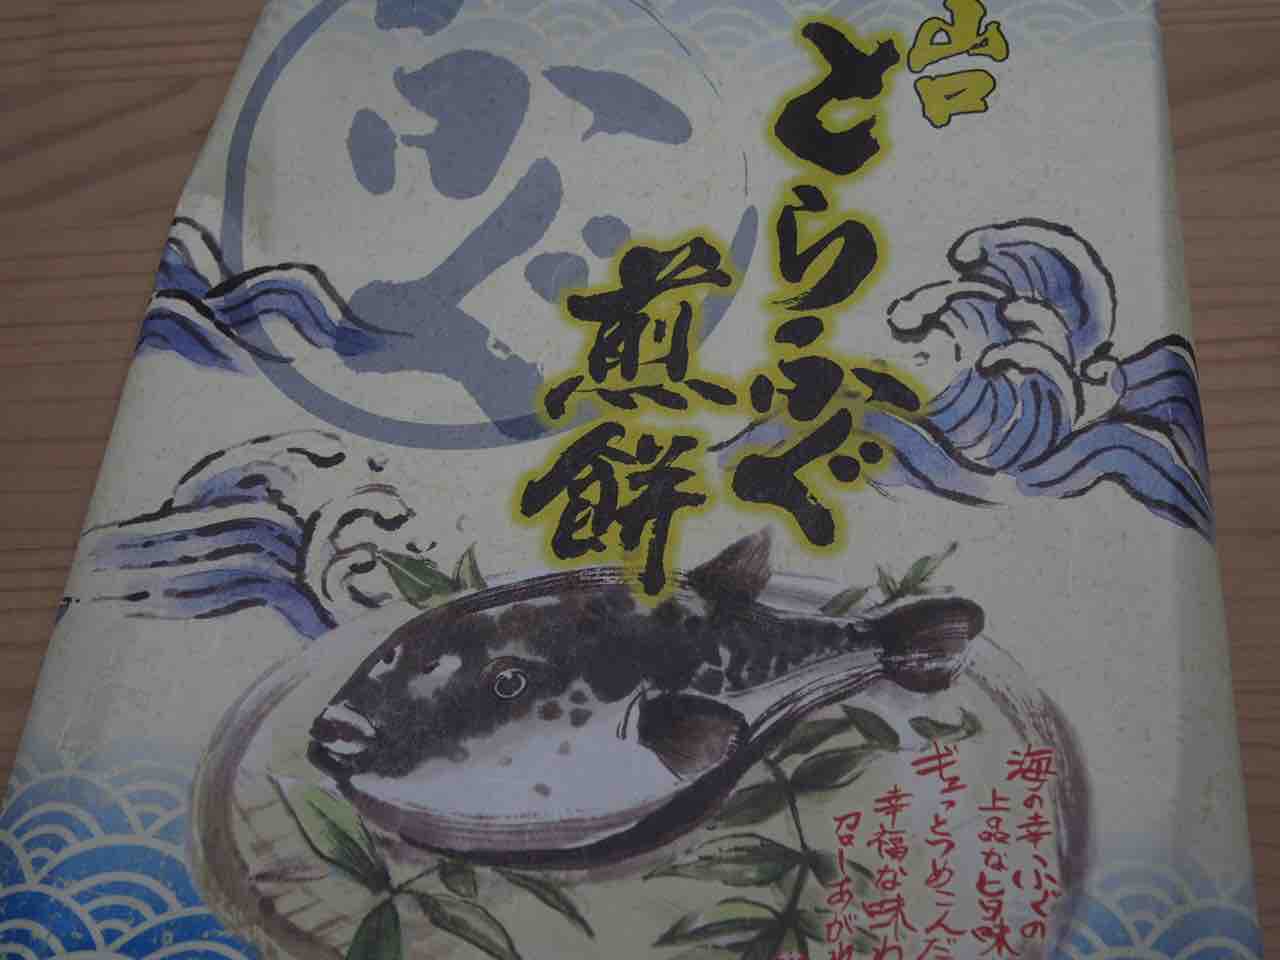 山口
とらふぐ
煎餅
ふぐ
海の幸ふぐの
上品な旨味
ギュっとつめこんだ
幸福な味わ
召しあがれ